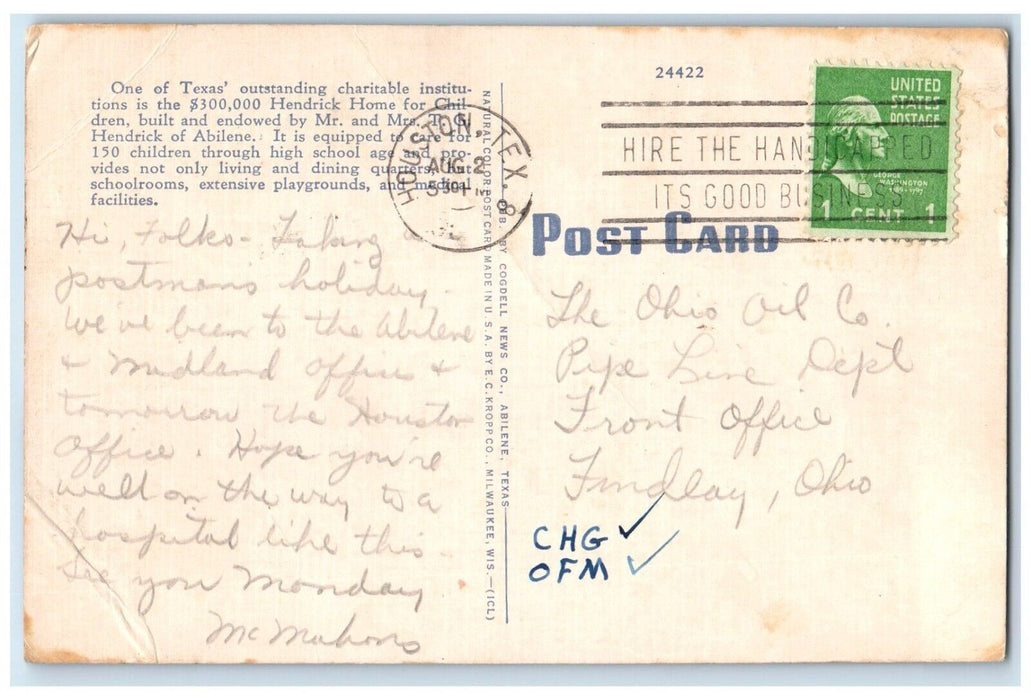 One of Texas' outstanding charitable institu-
tions is the $300,000 Hendrick Home for Chil-
dren, built and endowed by Mr. and Mrs. T. G.
Hendrick of Abilene. It is equipped to care for
150 children through high school age and pro-
vides not only living and dining quarters, but
schoolrooms, extensive playgrounds, and medical
facilities.
Hi, Folks- Taking a
postmans holiday -
We've been to the Abilene
+ Midland offices +
tomorrow the Houston
office. Hope you're
well on the way to a
hospital like this -
See you Monday
McMahons
NATURAL COLOR POST CARD MADE IN U. S. A. BY E. C. KROPP CO., MILWAUKEE, WIS.—(ICL)
PUB. BY COGDELL NEWS CO., ABILENE, TEXAS
HOUSTON, TEX.
AUG 2
24422
HIRE THE HANDICAPPED
ITS GOOD BUSINESS
UNITED
STATES
POSTAGE
GEORGE
WASHINGTON
1789-1797
1 CENT 1
POST CARD
The Ohio Oil Co.
Pipe Line Dept
Front Office
Findlay, Ohio
CHG ✓
OFM ✓